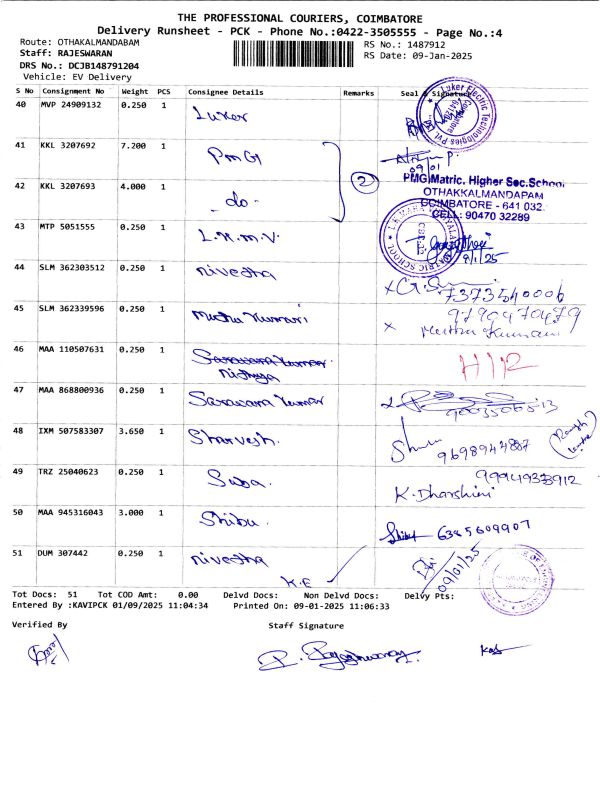 THE PROFESSIONAL COURIERS, COIMBATORE
Delivery Runsheet - PCK - Phone No.:0422-3505555 - Page No.:4
Route: OTHAKALMANDABAM
RS No.: 1487912
Staff: RAJESWARAN
RS Date: 09-Jan-2025
DRS No.: DCJB148791204
Vehicle: EV Delivery
S No Consignment No Weight PCS Consignee Details Remarks Seal & Signature
40 MVP 24909132 0.250 1 Luker
41 KKL 3207692 7.200 1 PMG
09/01
42 KKL 3207693 4.000 1 -do- 2
PMG Matric. Higher Sec.School
OTHAKKALMANDAPAM
COIMBATORE - 641 032.
CELL: 90470 32289
43 MTP 5051555 0.250 1 L.R.M.V.
9/1/25
44 SLM 362303512 0.250 1 Nivestha
7373540006
45 SLM 362339596 0.250 1 Muthu Kumari 9790470479
Muthu Kumari
46 MAA 110507631 0.250 1 Saravana Kumar
Nithya
47 MAA 868800936 0.250 1 Saravana Kumar
48 IXM 507583307 3.650 1 Sharvesh. 9698944887
49 TRZ 25040623 0.250 1 Suba.
K. Dharshini
50 MAA 945316043 3.000 1 Shibu. Shibu 6385609907
51 DUM 307442 0.250 1 Nivestha
K.E 09/01/25
Tot Docs: 51 Tot COD Amt: 0.00 Delvd Docs: Non Delvd Docs: Delvy Pts:
Entered By :KAVIPCK 01/09/2025 11:04:34 Printed On: 09-01-2025 11:06:33
Verified By Staff Signature